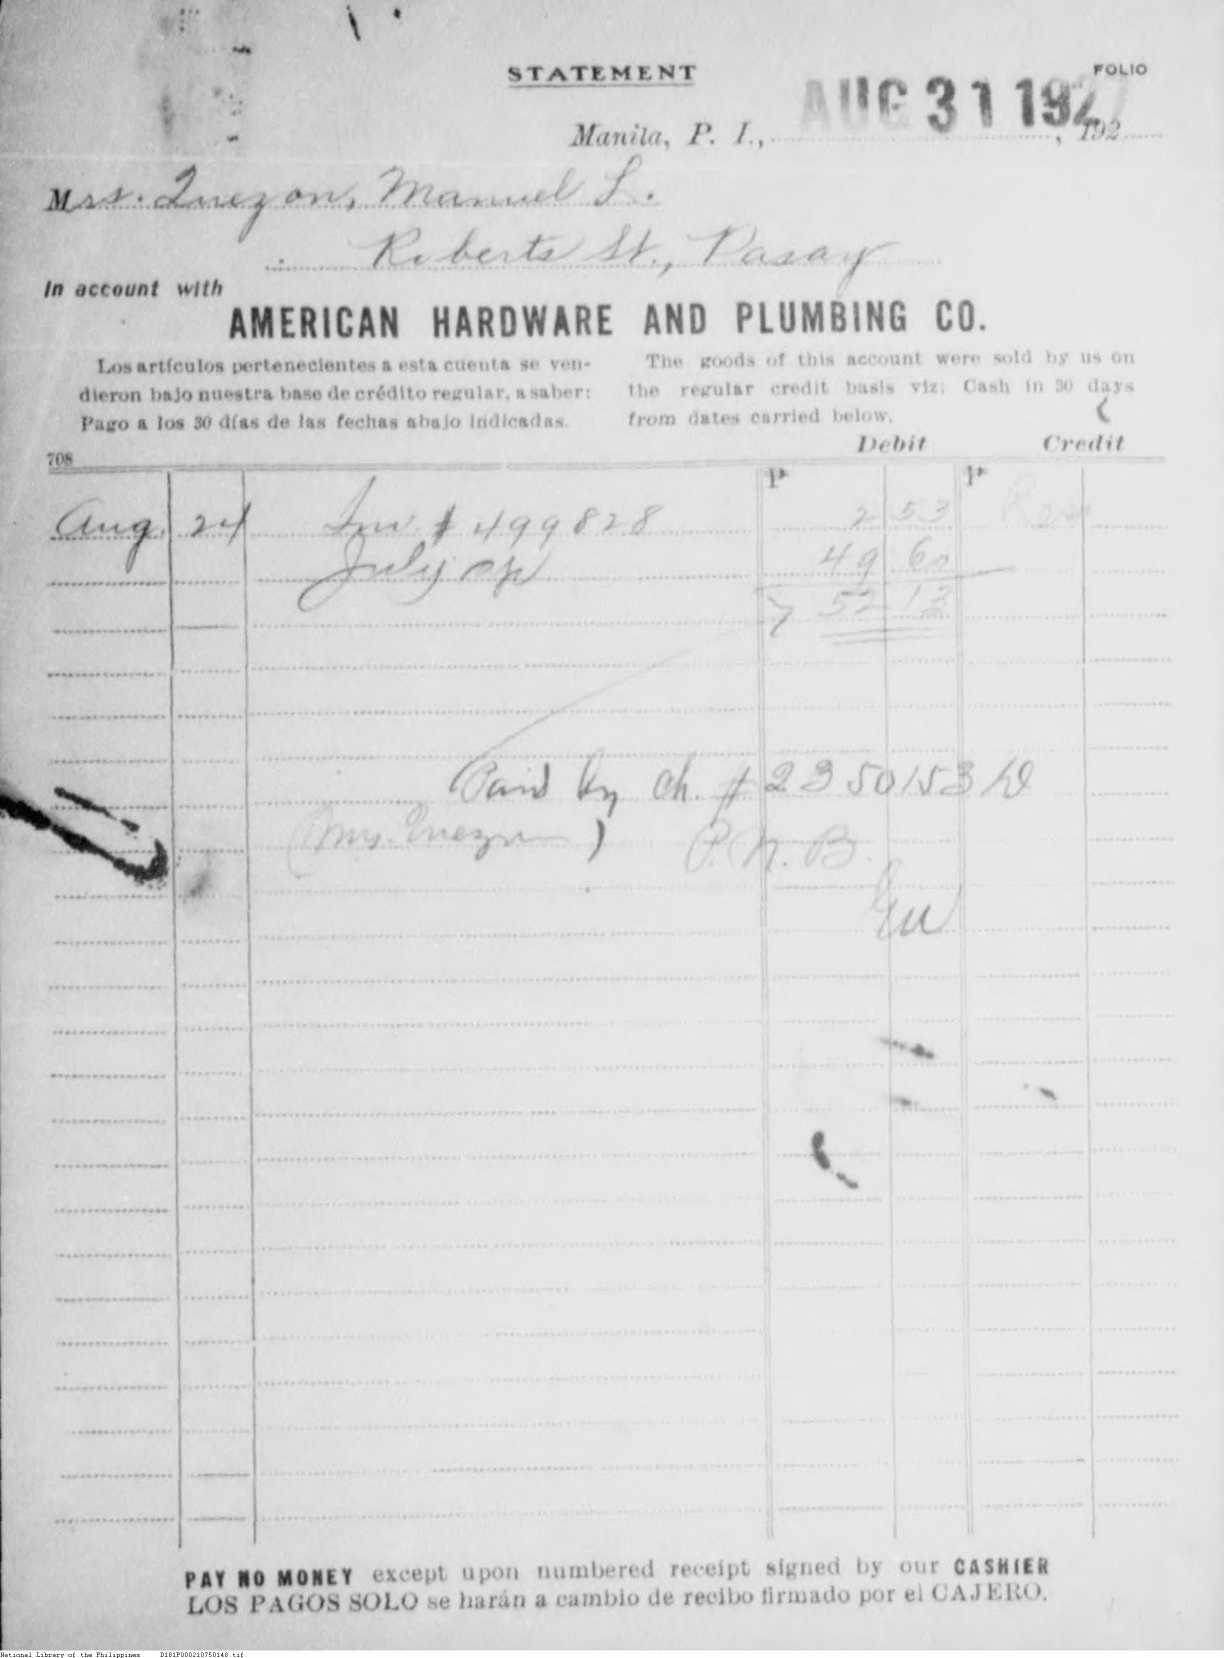 STATEMENT
FOLIO
Manila, P. I., AUG 31 1927, 192
Mrs. Quezon, Manuel L.
Roberts St., Pasay
In account with
AMERICAN HARDWARE AND PLUMBING CO.
Los artículos pertenecientes a esta cuenta se ven-
dieron bajo nuestra base de crédito regular, a saber:
Pago a los 30 días de las fechas abajo indicadas.
The goods of this account were sold by us on
the regular credit basis viz: Cash in 30 days
from dates carried below.
Debit Credit
708
₱ ₱
Aug. 24 Inv # 499828 2 53
July 49 60
52 13
Paid by ch. # 2350153 D
(Mrs. Quezon) P.N.B.
PAY NO MONEY except upon numbered receipt signed by our CASHIER
LOS PAGOS SOLO se harán a cambio de recibo firmado por el CAJERO.
National Library of the Philippines D181P000210750148.tif